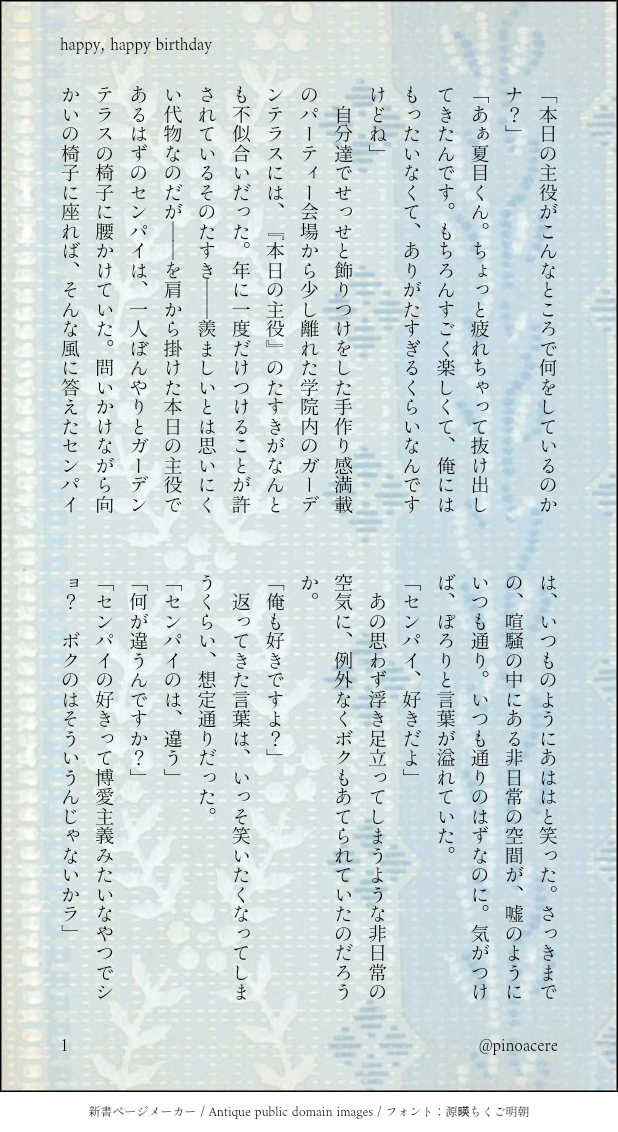 happy, happy birthday
「本日の主役がこんなところで何をしているのか
ナ？」
「あぁ夏目くん。ちょっと疲れちゃって抜け出し
てきたんです。もちろんすごく楽しくて、俺には
もったいなくて、ありがたすぎるくらいなんです
けどね」
　自分達でせっせと飾りつけをした手作り感満載
のパーティー会場から少し離れた学院内のガーデ
ンテラスには、『本日の主役』のたすきがなんと
も不似合いだった。年に一度だけつけることが許
されているそのたすき――羨ましいとは思いにく
い代物なのだが――を肩から掛けた本日の主役で
あるはずのセンパイは、一人ぼんやりとガーデン
テラスの椅子に腰かけていた。問いかけながら向
かいの椅子に座れば、そんな風に答えたセンパイ
は、いつものようにあははと笑った。さっきまで
の、喧騒の中にある非日常の空間が、嘘のように
いつも通り。いつも通りのはずなのに。気がつけ
ば、ぽろりと言葉が溢れていた。
「センパイ、好きだよ」
　あの思わず浮き足立ってしまうような非日常の
空気に、例外なくボクもあてられていたのだろう
か。
「俺も好きですよ？」
　返ってきた言葉は、いっそ笑いたくなってしま
うくらい、想定通りだった。
「センパイのは、違う」
「何が違うんですか？」
「センパイの好きって博愛主義みたいなやつでシ
ョ？　ボクのはそういうんじゃないかラ」
1
@pinoacere
新書ページメーカー / Antique public domain images / フォント：源暎ちくご明朝